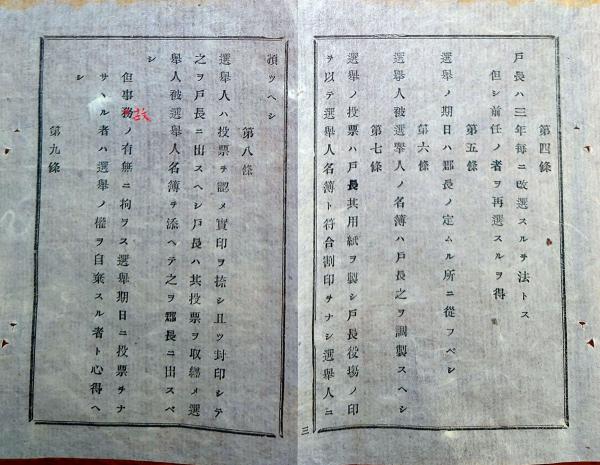 第四條
戸長ハ三年毎ニ改選スルヲ法トス
但シ前任ノ者ヲ再選スルヲ得
第五條
選擧ノ期日ハ郡長ノ定ムル所ニ從フベシ
第六條
選擧人被選擧人ノ名簿ハ戸長之ヲ調製スヘシ
第七條
選擧ノ投票ハ戸長其用紙ヲ製シ戸長役塲ノ印
ヲ以テ選擧人名簿ト符合割印ヲナシ選擧人ニ
三
頒ツヘシ
第八條
選擧人ハ投票ヲ認メ實印ヲ捺シ且ツ封印シテ
之ヲ戸長ニ出スヘシ戸長ハ其投票ヲ取纏メ選
擧人被選擧人名簿ヲ添ヘテ之ヲ郡長ニ出スベ
シ
但事務ノ有無ニ拘ヲス選擧期日ニ投票ヲナ
故
サヽル者ハ選擧ノ權ヲ自棄スル者ト心得ヘ
シ
第九條